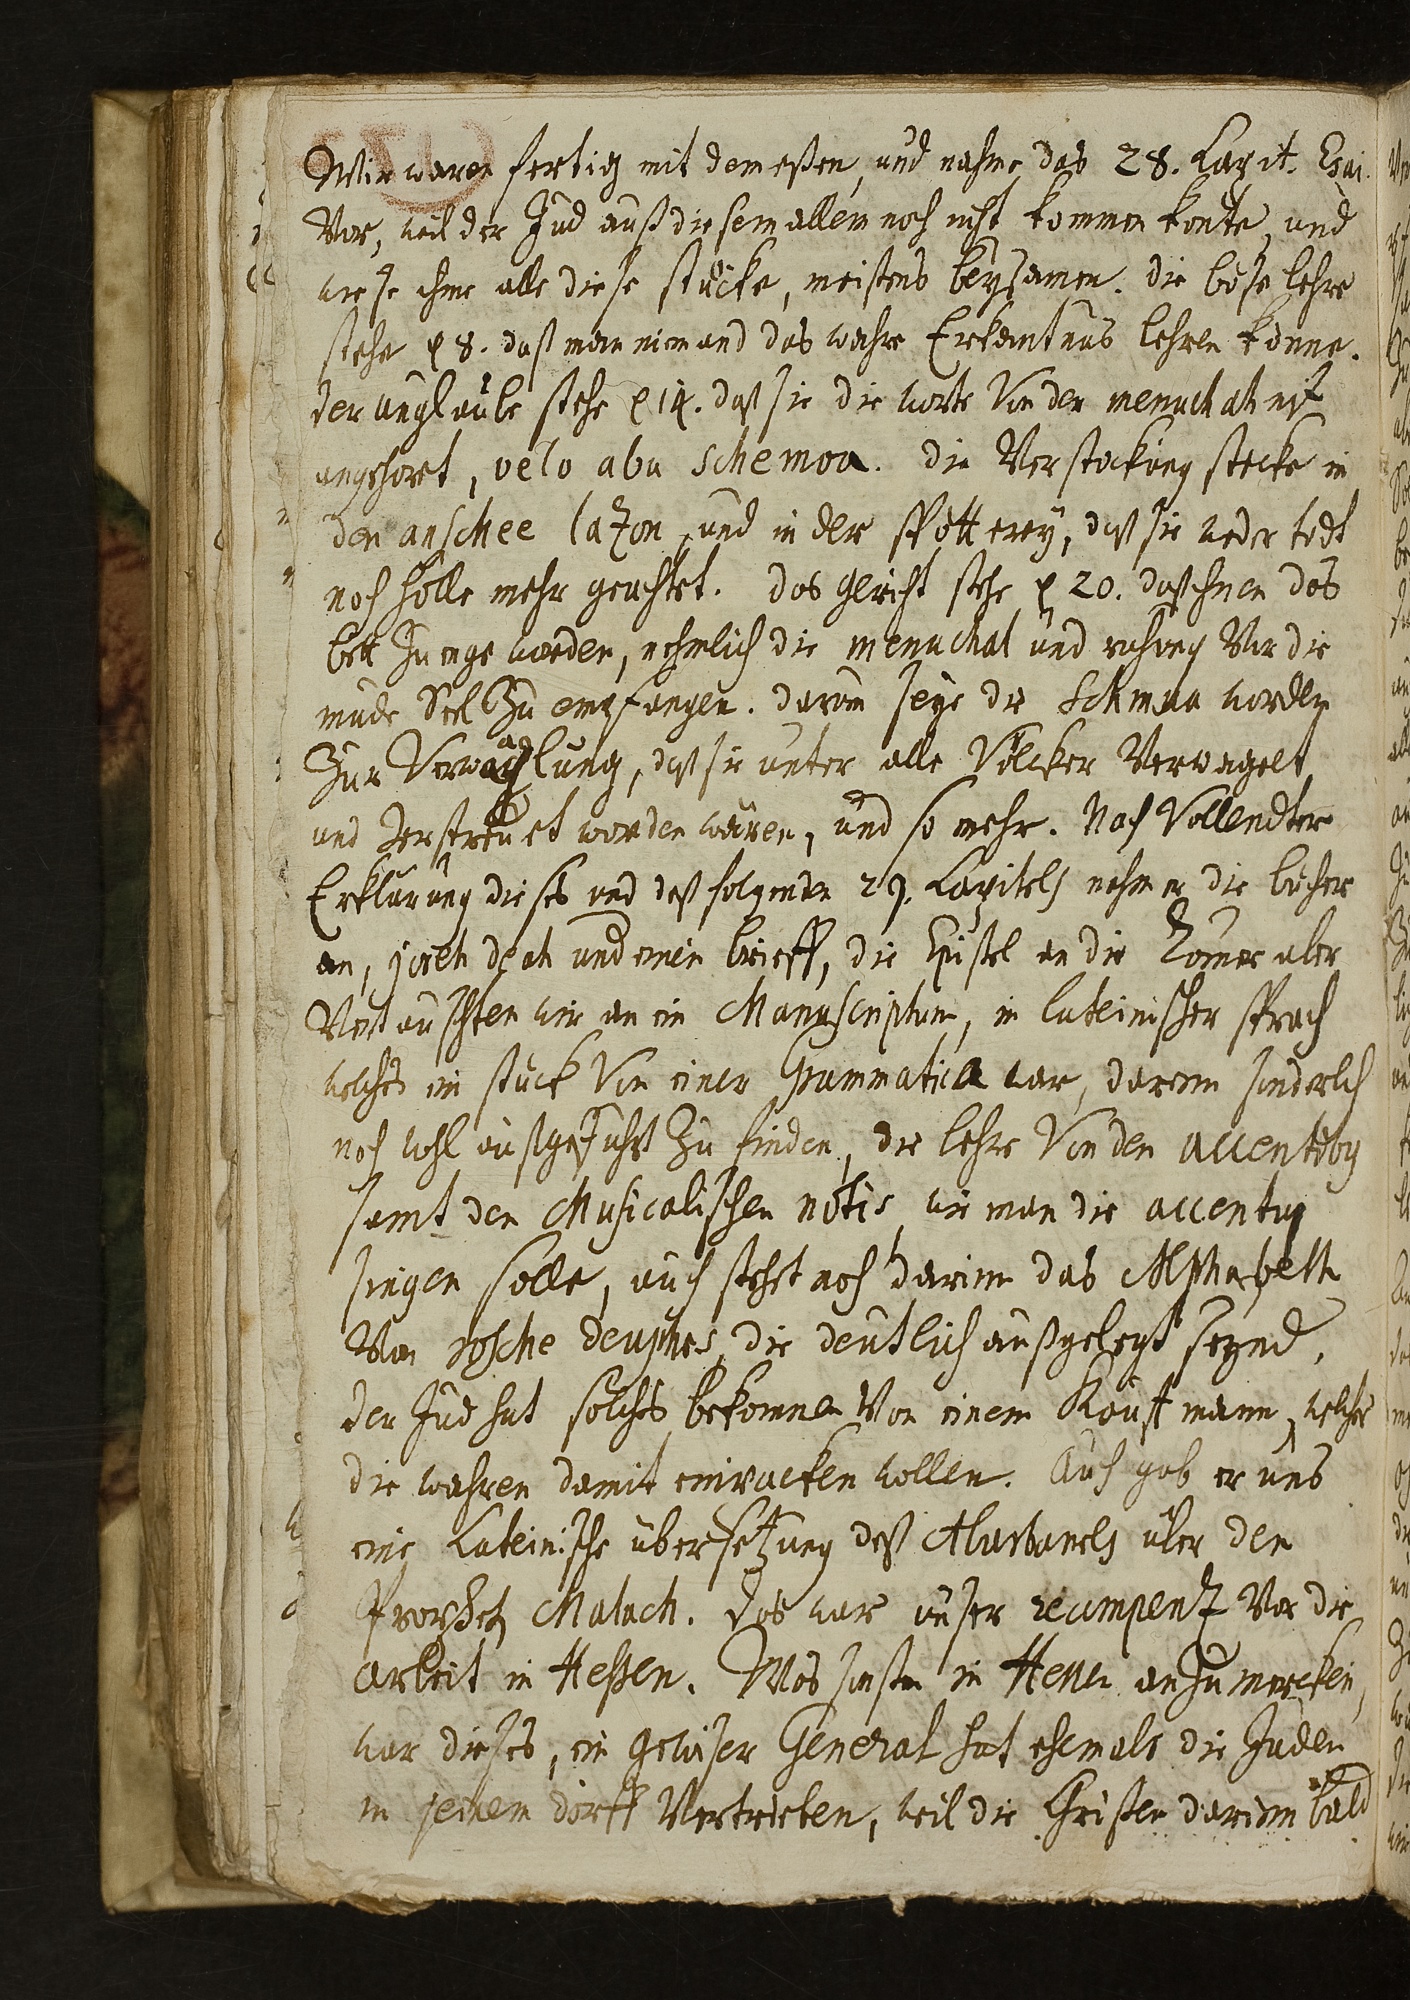 Wir waren fertig mit dem eßen, und nahme das 28. Capit. Esai.
Vor, weil der Jud auß diesem allem noch nicht kommen konte, und
wiese ihme alle diese stücke, meistens beysamen. die böse lehre
stehe 8. daß man niemand das wahre Erkantnus lehren könne.
der unglaube stehe 14. daß sie die worte Von der menuchah nicht
angehört, velo abu schemoa. die Verstockung stecke in
den anschee lazon, und in der spötterey, daß sie weder todt
noch hölle mehr geachtet. das gericht stehe 20. daß ihnen das
bett zu enge worden, nehmlich die menuchah und ruhung Vor die
müde Seel zu empfangen. darum seye die Schmua worden
Zur Verwaglung, daß sie unter alle Völcker Verwagelt
und zerstreuet worden wären, und so mehr. Nach Vollendter
Erklärung dieses und deß folgenden 29. Capitels nahm er die bücher
an, joreh deah und einen brieff, die Epistel an die Römer aber
Vertauschten wir an ein Manuscriptum, in lateinischer sprach
welches ein stück Von einer Grammatica war, darinn sonderlich
noch wohl außgeführt zu finden, die lehre Von den accentibus
samt den Musicalischen notis, wie man die accentus
singen solle, auch stehet noch darinn das Alphabeth
Von rosche deuphes, die deutlich außgelegt seynd.
der Jud hat solches bekommen Von einem Kauffmann, welcher
die wahren damit einpacken wollen. Auch gab er uns
eine Lateinische übersetzung deß Abarbanels über den
Propheten Malach. das war unser recompenz Vor die
arbeit in Heßen. Was sonsten in Heßen anzumercken,
war dieses, ein gewiser General hat ehemals die Juden
in seinem dorff Vertrieben, weil die Christen darinn bald